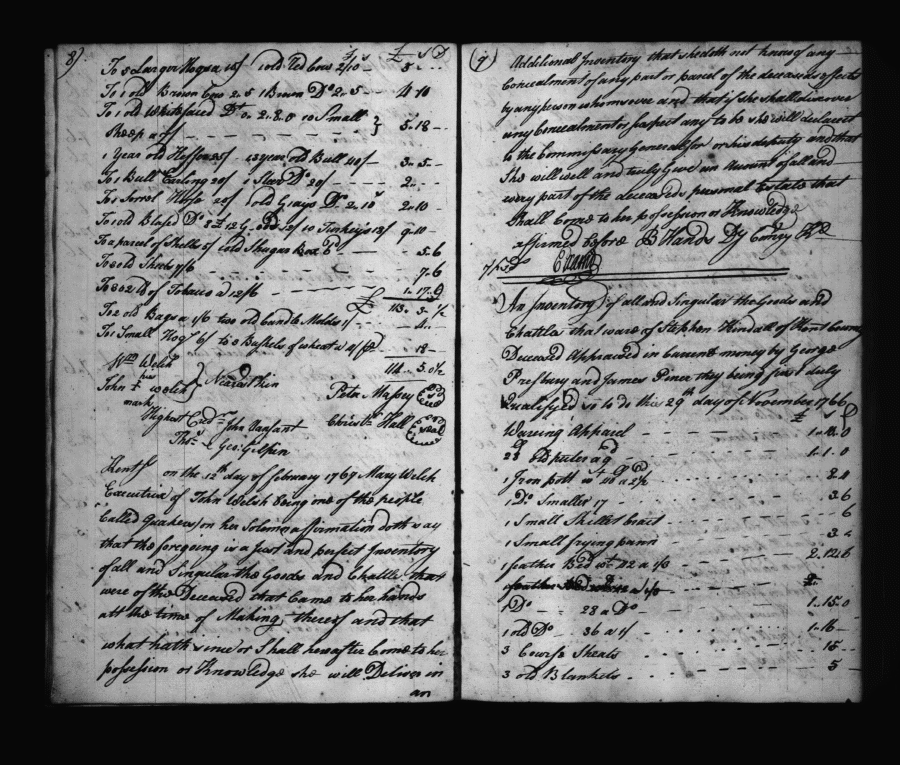 8)
£ S D
To 5 Larger Hogs a 10/ 1 old Red Cow 2/10 - 5 - -
To 1 old Brown Cow 2.5 1 Brown Do 2.5 - - 4.10
To 1 old Whitefaced Do 2.8.0 10 Small
Sheep a 7/ - - - - } 5.18 -
1 Year old Heffer 25/ 1 2 year old Bull 40/ - 3.5 -
To 1 Bull Earling 20/ 1 Steer Do 20/ - - 2 - -
To 1 Sorrel Horse 20/ 1 old Grays Do 2.10 2.10
To 1 old Blase Do 12 G 10 Turkeys 9.10 -
To a parcel of Shells 5/ old Shugar Box 6d - - 5.6
To old Sheets 7/6 - - - - 7.6
To 302 lb of Tobacco a 12/6 - - 1.17.9
£ 113.3.1/2
To 2 old Bags a 1/6 two old Candle Molds 1/ - 4 -
To 1 Small Hog 6/ to Bushels of wheat a - 18 -
114.5.0 1/2
Wm Welsh
his
John + welsh } Nearest Kin
mark
Peter Massey Seal
Highest Credrs John Vansant
Christr Hall Seal
Thos & Geo. Gilpin
Kent Ss on the 12th day of February 1767 Mary Welch
Executrix of John Welsh being one of the people
Called Quakers on her Solemn affirmation doth say
that the foregoing is a Just and perfect Inventory
of all and Singular the Goods and Chattles that
were of the Deceased that Came to her hands
att the time of Making thereof and that
what hath since or Shall hereafter Come to her
possession or Knowledge she will Deliver in
an
9)
Additional Inventory that she doth not know of any
Concealment of any part or parcel of the deceaseds effects
by any person whomsoever and that if she shall discover
any Concealment or suspect any to be she will declare it
to the Commissary General for or his deputy and that
She will well and truly Give an Account of all and
every part of the deceaseds personal Estate that
Shall Come to her possession or Knowledge
affirmed before B Hands Dy Comry Kt
Examd
An Inventory of all and Singular the Goods and
Chattles that ware of Stephen Kindall of Kent County
Deceased Appraised in Current money by George
Presbury and James Piner they being first duly
Qualified so to do this 29th day of November 1766
£ S D
Waring Apparel - - - - 1.10.0
28 lb puter a 9d - - - 1.1.0
1 Iron pott wt - - - 2.0
1 Do Smaller 17 - - - 3.6
1 Small Skillet Cract - - - 6
1 Small frying pann - - - 3 -
1 feather Bed wt 42 a 1/3 - - - 2.12.6
1 Do - - 28 a Do - - - 1.15.0
1 old Do - 36 a 1/ - - - 1.16 -
3 Course Sheats - - - 15 -
3 old Blankets - - - 5